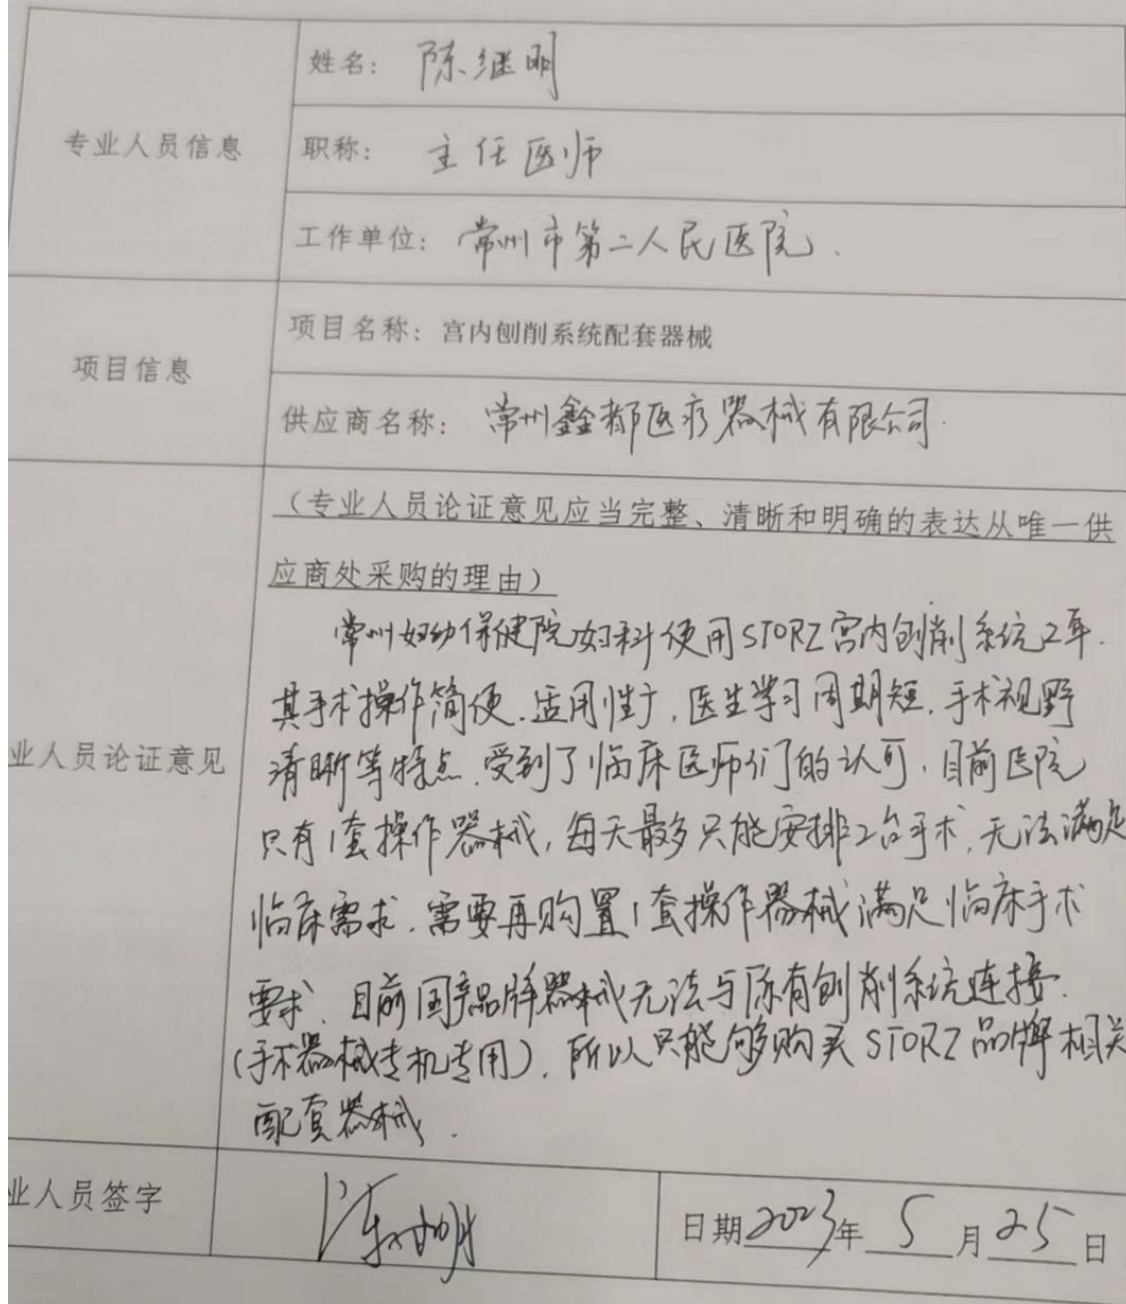 姓名：陈继明
专业人员信息
职称：主任医师
工作单位：常州市第二人民医院.
项目名称：宫内刨削系统配套器械
项目信息
供应商名称：常州鑫都医疗器械有限公司.
（专业人员论证意见应当完整、清晰和明确的表达从唯一供
应商处采购的理由）
常州妇幼保健院妇科使用STORZ宫内刨削系统2年.
其手术操作简便.适用性广,医生学习周期短.手术视野
清晰等特点.受到了临床医师们的认可.目前医院
业人员论证意见
只有1套操作器械,每天最多只能安排2台手术.无法满足
临床需求.需要再购置1套操作器械满足临床手术
要求.目前国产品牌器械无法与原有刨削系统连接.
(手术器械专机专用).所以只能够购买STORZ品牌相关
配套器械.
业人员签字 陈继明 日期2023年5月25日